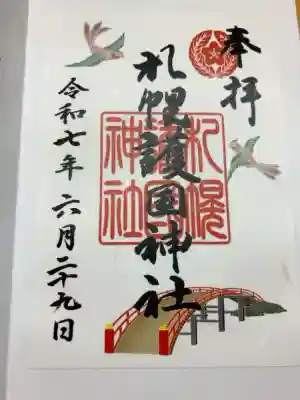 奉拝
札幌護国神社
札幌護国神社
令和七年六月二十九日